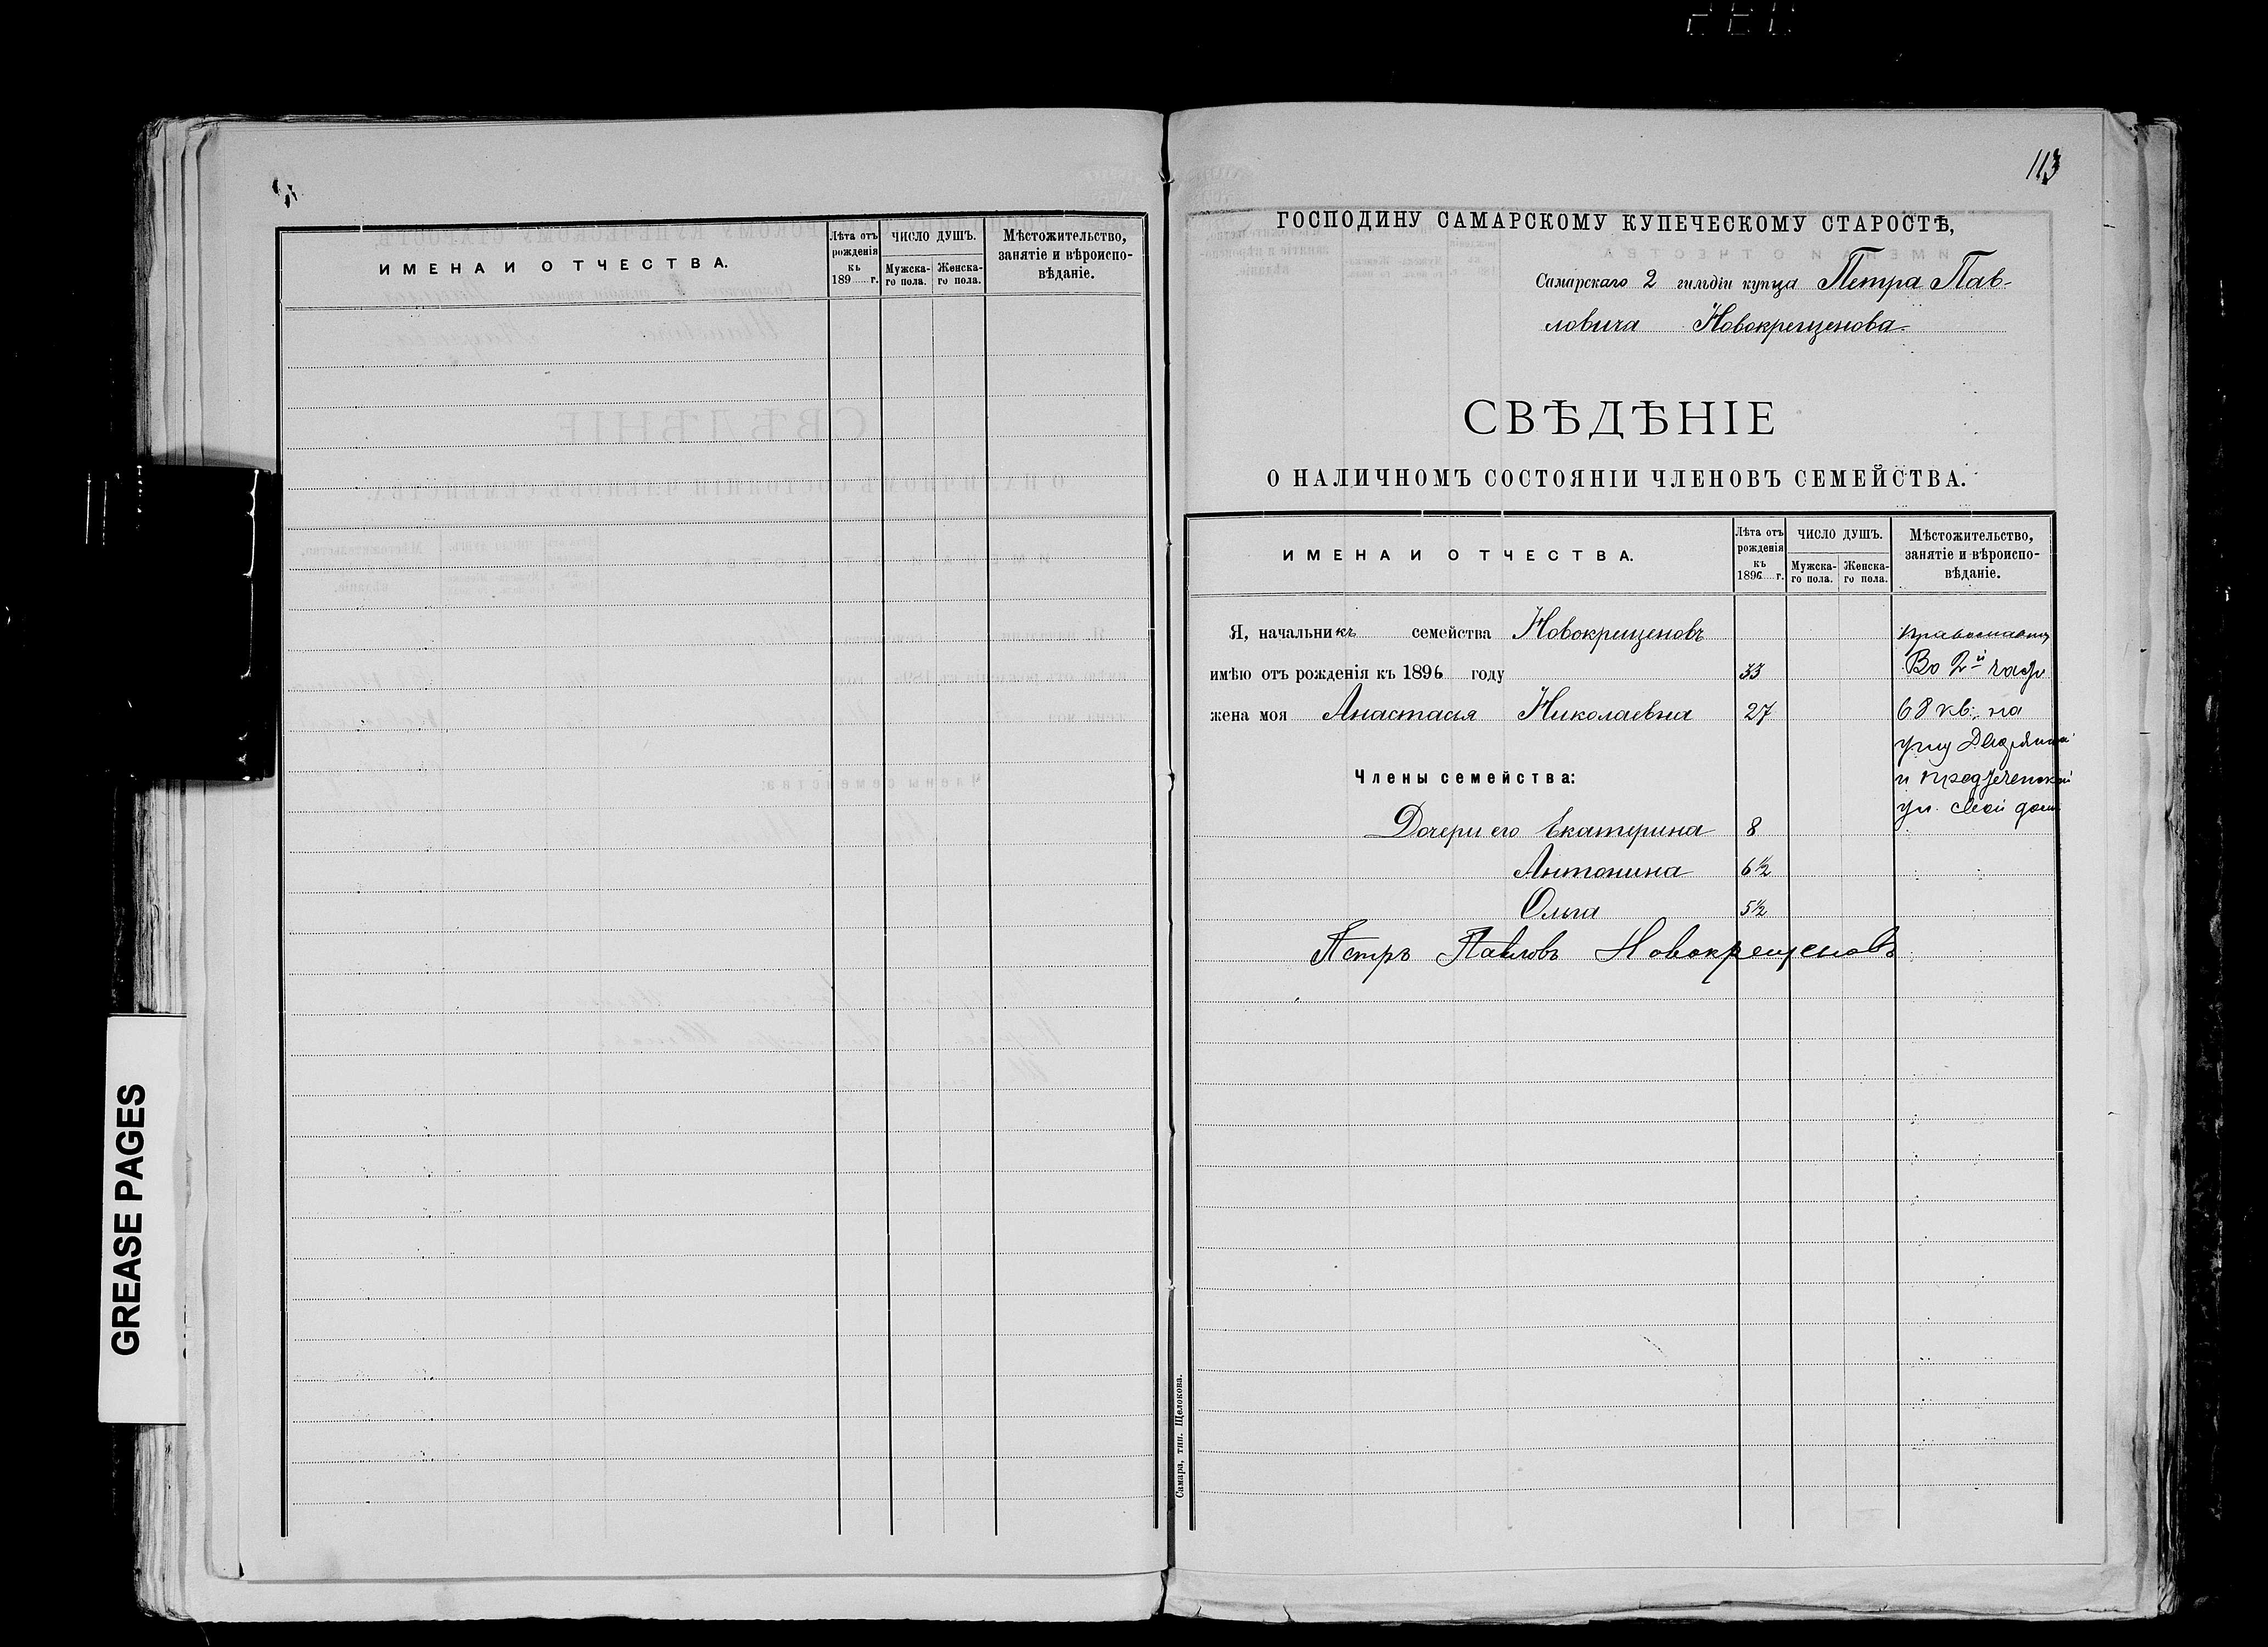 ИМЕНА И ОТЧЕСТВА.
Лѣта отъ рожденія къ 189 г.
ЧИСЛО ДУШЪ.
Мужска-го пола.
Женска-го пола.
Мѣстожительство, занятіе и вѣроиспо-вѣданіе.
GREASE PAGES
113
ГОСПОДИНУ САМАРСКОМУ КУПЕЧЕСКОМУ СТАРОСТѢ,
Самарскаго 2 гильдіи купца Петра Пав-
ловича Новокрещенова
СВѢДѢНІЕ
О НАЛИЧНОМЪ СОСТОЯНІИ ЧЛЕНОВЪ СЕМЕЙСТВА.
ИМЕНА И ОТЧЕСТВА.
Лѣта отъ рожденія къ 1896 г.
ЧИСЛО ДУШЪ.
Мужска-го пола.
Женска-го пола.
Мѣстожительство, занятіе и вѣроиспо-вѣданіе.
Я, начальникъ семейства Новокрещеновъ
имѣю отъ рожденія къ 1896 году 33 Во 2й
жена моя Анастасія Николаевна 27 68 кв. на
углу
Члены семейства: и
ул. свой домъ
Дочери его Екатерина 8
Антонина 6½
Ольга 5½
Петръ Павловъ Новокрещеновъ
Самара, тип. Щелокова.